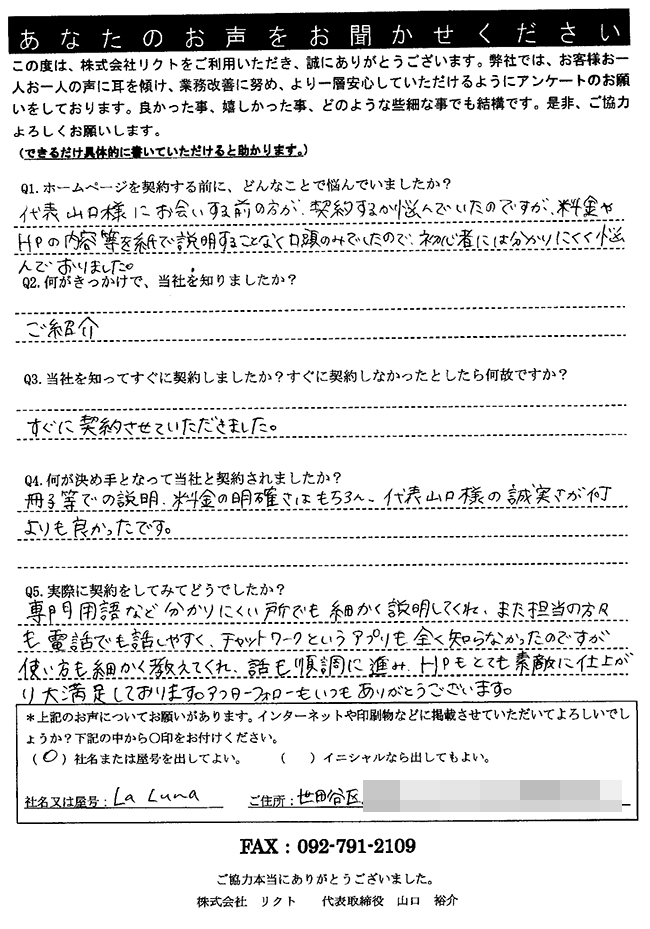 あなたのお声をお聞かせください
この度は、株式会社リクトをご利用いただき、誠にありがとうございます。弊社では、お客様お一
人お一人の声に耳を傾け、業務改善に努め、より一層安心していただけるようにアンケートのお願
いをしております。良かった事、嬉しかった事、どのような些細な事でも結構です。是非、ご協力
よろしくお願いします。
（できるだけ具体的に書いていただけると助かります。）
Q1.ホームページを契約する前に、どんなことで悩んでいましたか？
代表山口様にお会いする前の方が、契約するか悩んでいたのですが、料金や
HPの内容等を紙で説明することなく口頭のみでしたので、初心者には分かりにくく悩
んでおりました。
Q2.何がきっかけで、当社を知りましたか？
ご紹介
Q3.当社を知ってすぐに契約しましたか？すぐに契約しなかったとしたら何故ですか？
すぐに契約させていただきました。
Q4.何が決め手となって当社と契約されましたか？
冊子等での説明、料金の明確さはもちろん、代表山口様の誠実さが何
よりも良かったです。
Q5.実際に契約をしてみてどうでしたか？
専門用語など分かりにくい所でも細かく説明してくれ、また担当の方々
も電話でも話しやすく、チャットワークというアプリも全く知らなかったのですが
使い方も細かく教えてくれ、話も順調に進み、HPもとても素敵に仕上が
り大満足しております。アフターフォローもいつもありがとうございます。
＊上記のお声についてお願いがあります。インターネットや印刷物などに掲載させていただいてよろしいでし
ょうか？下記の中から〇印をお付けください。
（〇）社名または屋号を出してよい。　（　）イニシャルなら出してもよい。
社名又は屋号：La Luna　ご住所：世田谷区
FAX：092-791-2109
ご協力本当にありがとうございました。
株式会社　リクト　代表取締役　山口　裕介